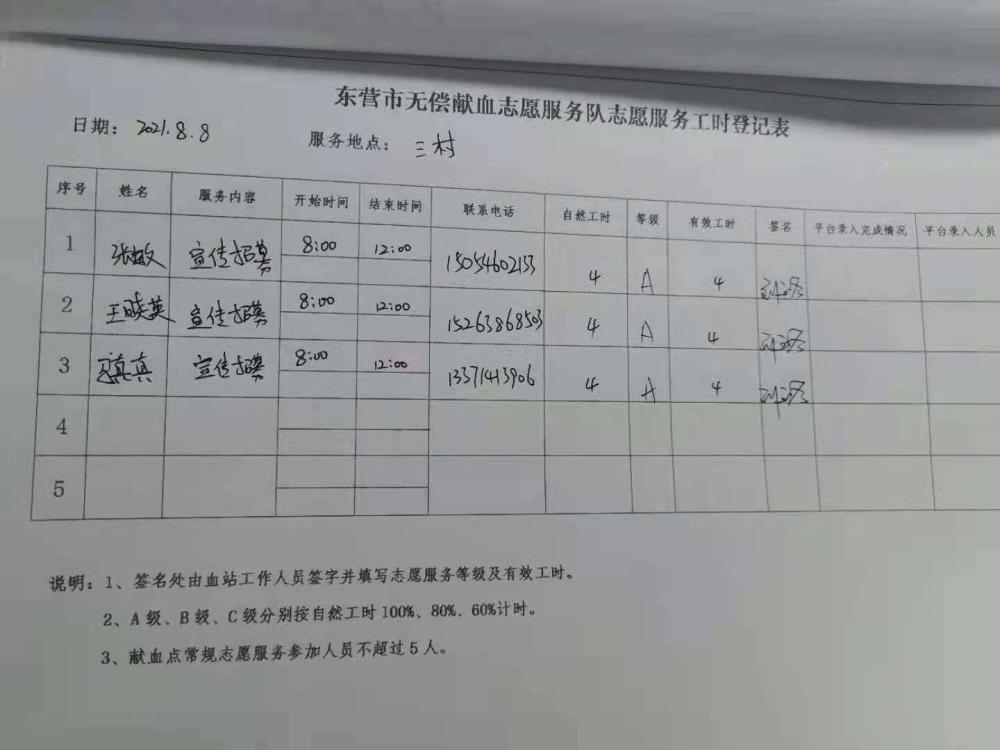 东营市无偿献血志愿服务队志愿服务工时登记表
日期： 2021.8.8 服务地点： 三村
序号 姓名 服务内容 开始时间 结束时间 联系电话 自然工时 等级 有效工时 签名 平台录入完成情况 平台录入人员
1 张敏 宣传招募 8:00 12:00 15054602153 4 A 4
2 王晓英 宣传招募 8:00 12:00 15263868503 4 A 4
3 真真 宣传招募 8:00 12:00 13371413906 4 A 4
4
5
说明：1、签名处由血站工作人员签字并填写志愿服务等级及有效工时。
2、A 级、B 级、C 级分别按自然工时 100%、80%、60%计时。
3、献血点常规志愿服务参加人员不超过 5 人。